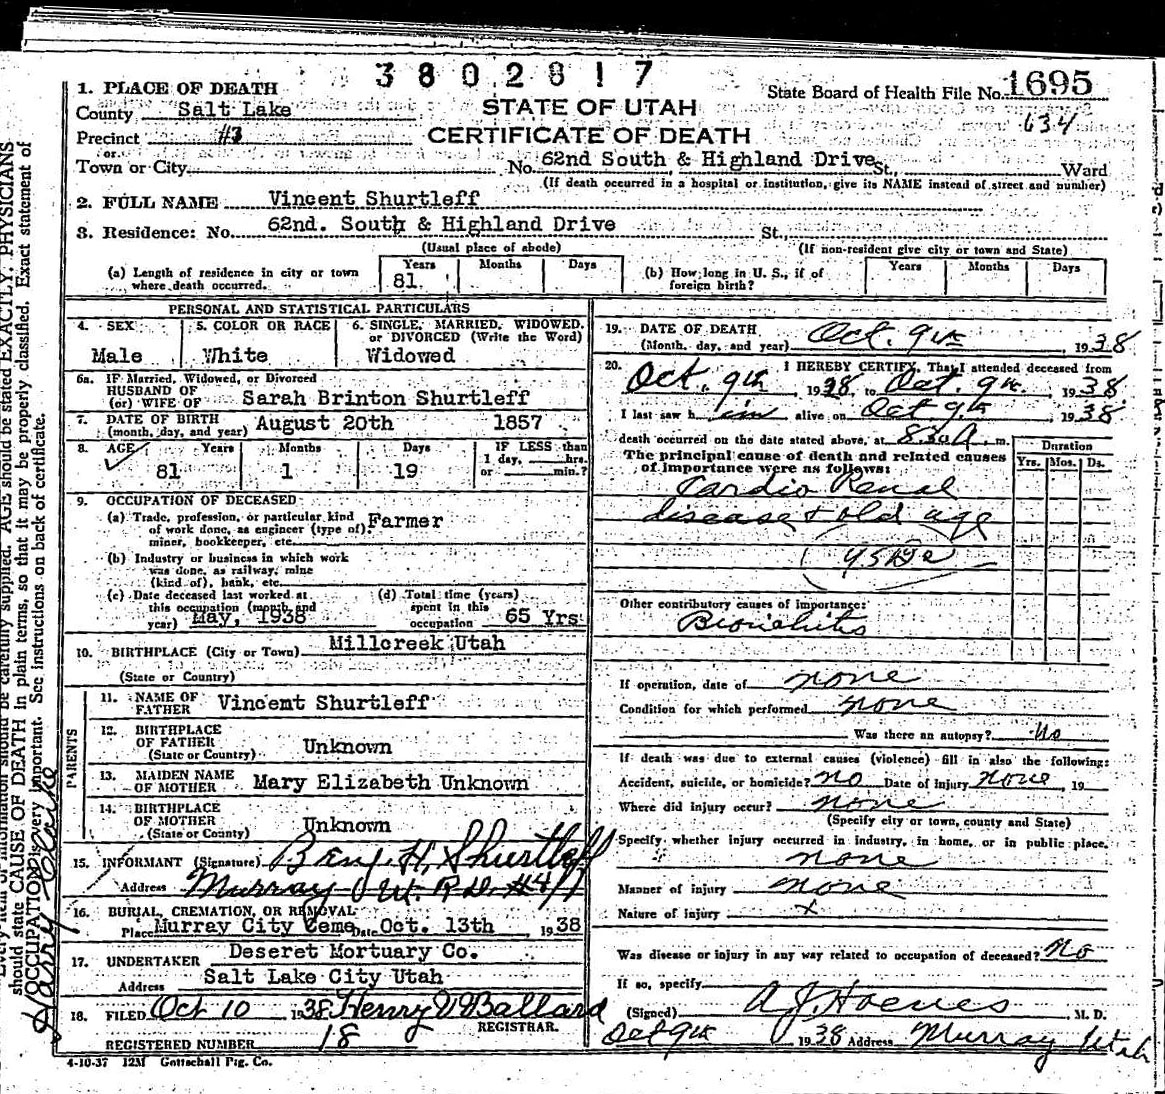 3802817
1. PLACE OF DEATH
State Board of Health File No. 1695
County Salt Lake
STATE OF UTAH
634
Precinct #3
CERTIFICATE OF DEATH
or
Town or City No. 62nd South & Highland Drive St., Ward
(If death occurred in a hospital or institution, give its NAME instead of street and number)
2. FULL NAME Vincent Shurtleff
3. Residence: No. 62nd. South & Highland Drive St.,
(Usual place of abode) (If non-resident give city or town and State)
(a) Length of residence in city or town where death occurred. Years 81 Months Days
(b) How long in U. S., if of foreign birth? Years Months Days
PERSONAL AND STATISTICAL PARTICULARS
4. SEX Male
5. COLOR OR RACE White
6. SINGLE, MARRIED, WIDOWED, or DIVORCED (Write the Word) Widowed
6a. IF Married, Widowed, or Divorced
HUSBAND OF
(or) WIFE OF Sarah Brinton Shurtleff
7. DATE OF BIRTH
(month, day, and year) August 20th 1857
8. AGE Years Months Days IF LESS than
1 day, hrs.
81 1 19 or min.?
9. OCCUPATION OF DECEASED
(a) Trade, profession, or particular kind
of work done, as engineer (type of), Farmer
miner, bookkeeper, etc.
(b) Industry or business in which work
was done, as railway, mine
(kind of), bank, etc.
(c) Date deceased last worked at
this occupation (month and
year) May, 1938
(d) Total time (years)
spent in this
occupation 65 Yrs
10. BIRTHPLACE (City or Town) Millcreek Utah
(State or Country)
PARENTS
11. NAME OF
FATHER Vincent Shurtleff
12. BIRTHPLACE
OF FATHER Unknown
(State or Country)
13. MAIDEN NAME
OF MOTHER Mary Elizabeth Unknown
14. BIRTHPLACE
OF MOTHER Unknown
(State or County)
15. INFORMANT (Signature) Benj. H. Shurtleff
Address Murray Ut. R.D. #4
16. BURIAL, CREMATION, OR REMOVAL
Place Murray City Ceme Date Oct. 13th, 1938
17. UNDERTAKER Deseret Mortuary Co.
Address Salt Lake City Utah
18. FILED Oct 10, 1938 Henry Ballard
REGISTRAR.
REGISTERED NUMBER 18
4-10-37 12M Gottschall Ptg. Co.
19. DATE OF DEATH
(Month, day, and year) Oct. 9th, 1938
20. I HEREBY CERTIFY, That I attended deceased from
Oct. 9th, 1938, to Oct. 9th, 1938.
I last saw h im alive on Oct 9th, 1938
death occurred on the date stated above, at 8.30A. m.
The principal cause of death and related causes
of importance were as follows:
Duration
Yrs. Mos. Ds.
Cardio Renal
disease & old age
Other contributory causes of importance:
Bronchitis
If operation, date of none
Condition for which performed none
Was there an autopsy? No
If death was due to external causes (violence) fill in also the following:
Accident, suicide, or homicide? no Date of injury none, 19
Where did injury occur? none
(Specify city or town, county and State)
Specify whether injury occurred in industry, in home, or in public place.
none
Manner of injury none
Nature of injury x
Was disease or injury in any way related to occupation of deceased? no
If so, specify
(Signed) M. D.
Oct 9th 1938 Address Murray Utah
should be carefully supplied. AGE should be stated EXACTLY. PHYSICIANS
should state CAUSE OF DEATH in plain terms, so that it may be properly classified. Exact statement of
OCCUPATION is very important. See instructions on back of certificate.